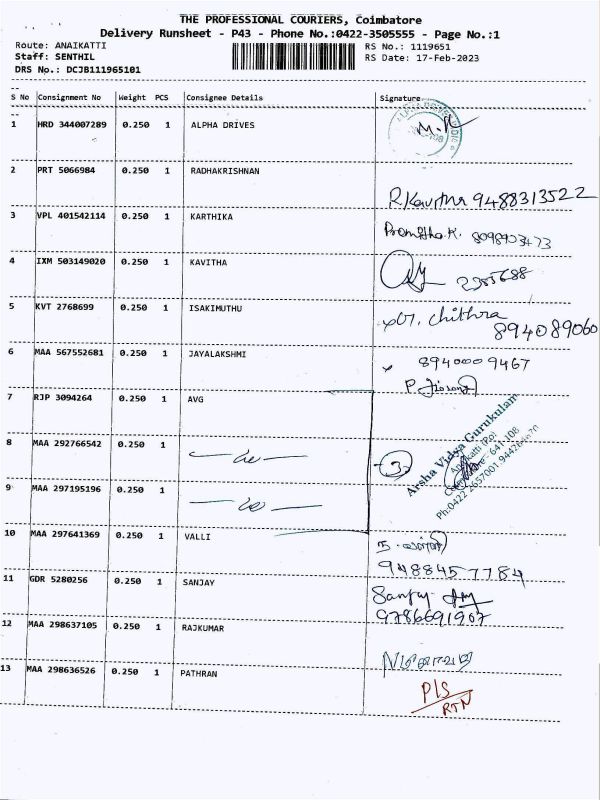 THE PROFESSIONAL COURIERS, Coimbatore
Delivery Runsheet - P43 - Phone No.:0422-3505555 - Page No.:1
Route: ANAIKATTI RS No.: 1119651
Staff: SENTHIL RS Date: 17-Feb-2023
DRS No.: DCJB111965101
S No Consignment No Weight PCS Consignee Details Signature
1 HRD 344007289 0.250 1 ALPHA DRIVES
2 PRT 5066984 0.250 1 RADHAKRISHNAN
R.Kavitha 9488313522
3 VPL 401542114 0.250 1 KARTHIKA
4 IXM 503149020 0.250 1 KAVITHA
5 KVT 2768699 0.250 1 ISAKIMUTHU
chithra
894089060
6 MAA 567552681 0.250 1 JAYALAKSHMI
8940009467
7 RJP 3094264 0.250 1 AVG
8 MAA 292766542 0.250 1
3
Arsha Vidya Gurukulam
9 MAA 297195196 0.250 1
10 MAA 297641369 0.250 1 VALLI
9488457784
11 GDR 5280256 0.250 1 SANJAY
Sanjay
9786691907
12 MAA 298637105 0.250 1 RAJKUMAR
13 MAA 298636526 0.250 1 PATHRAN
P/S
RTN